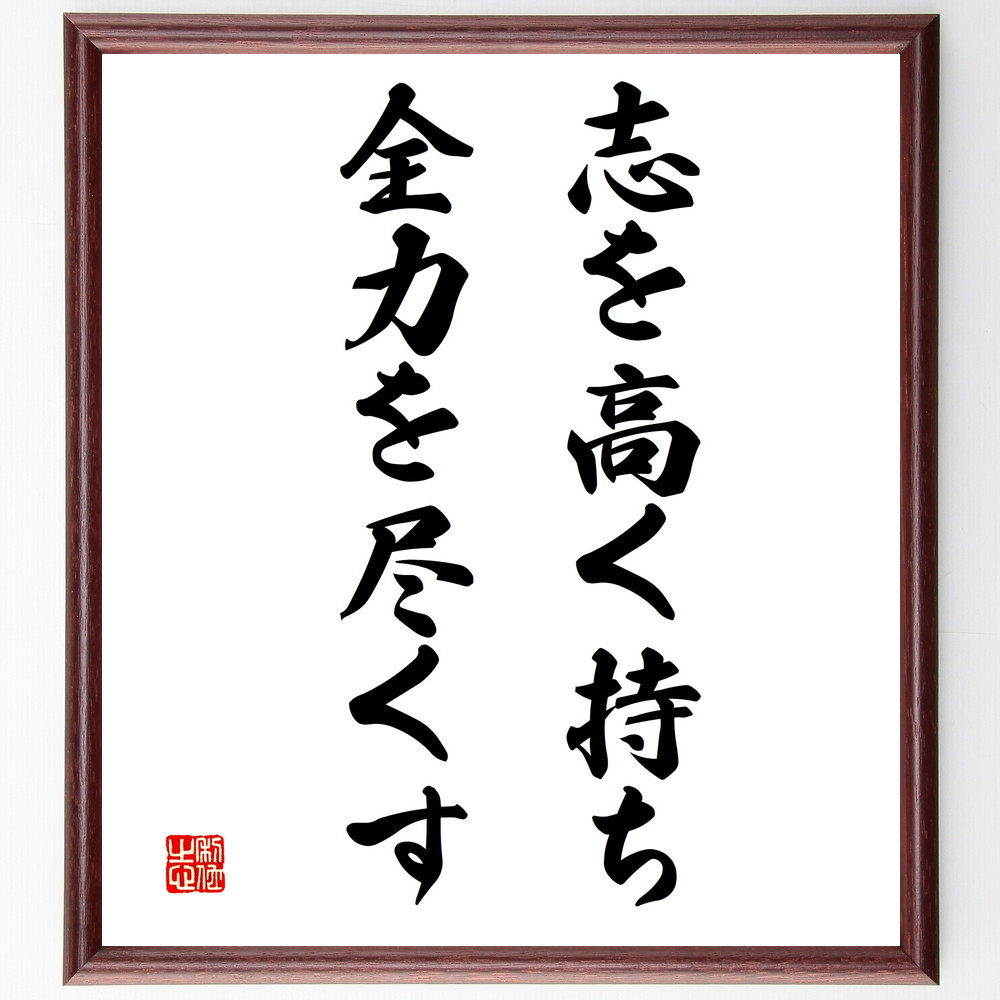 志を高く持ち
全力を尽くす